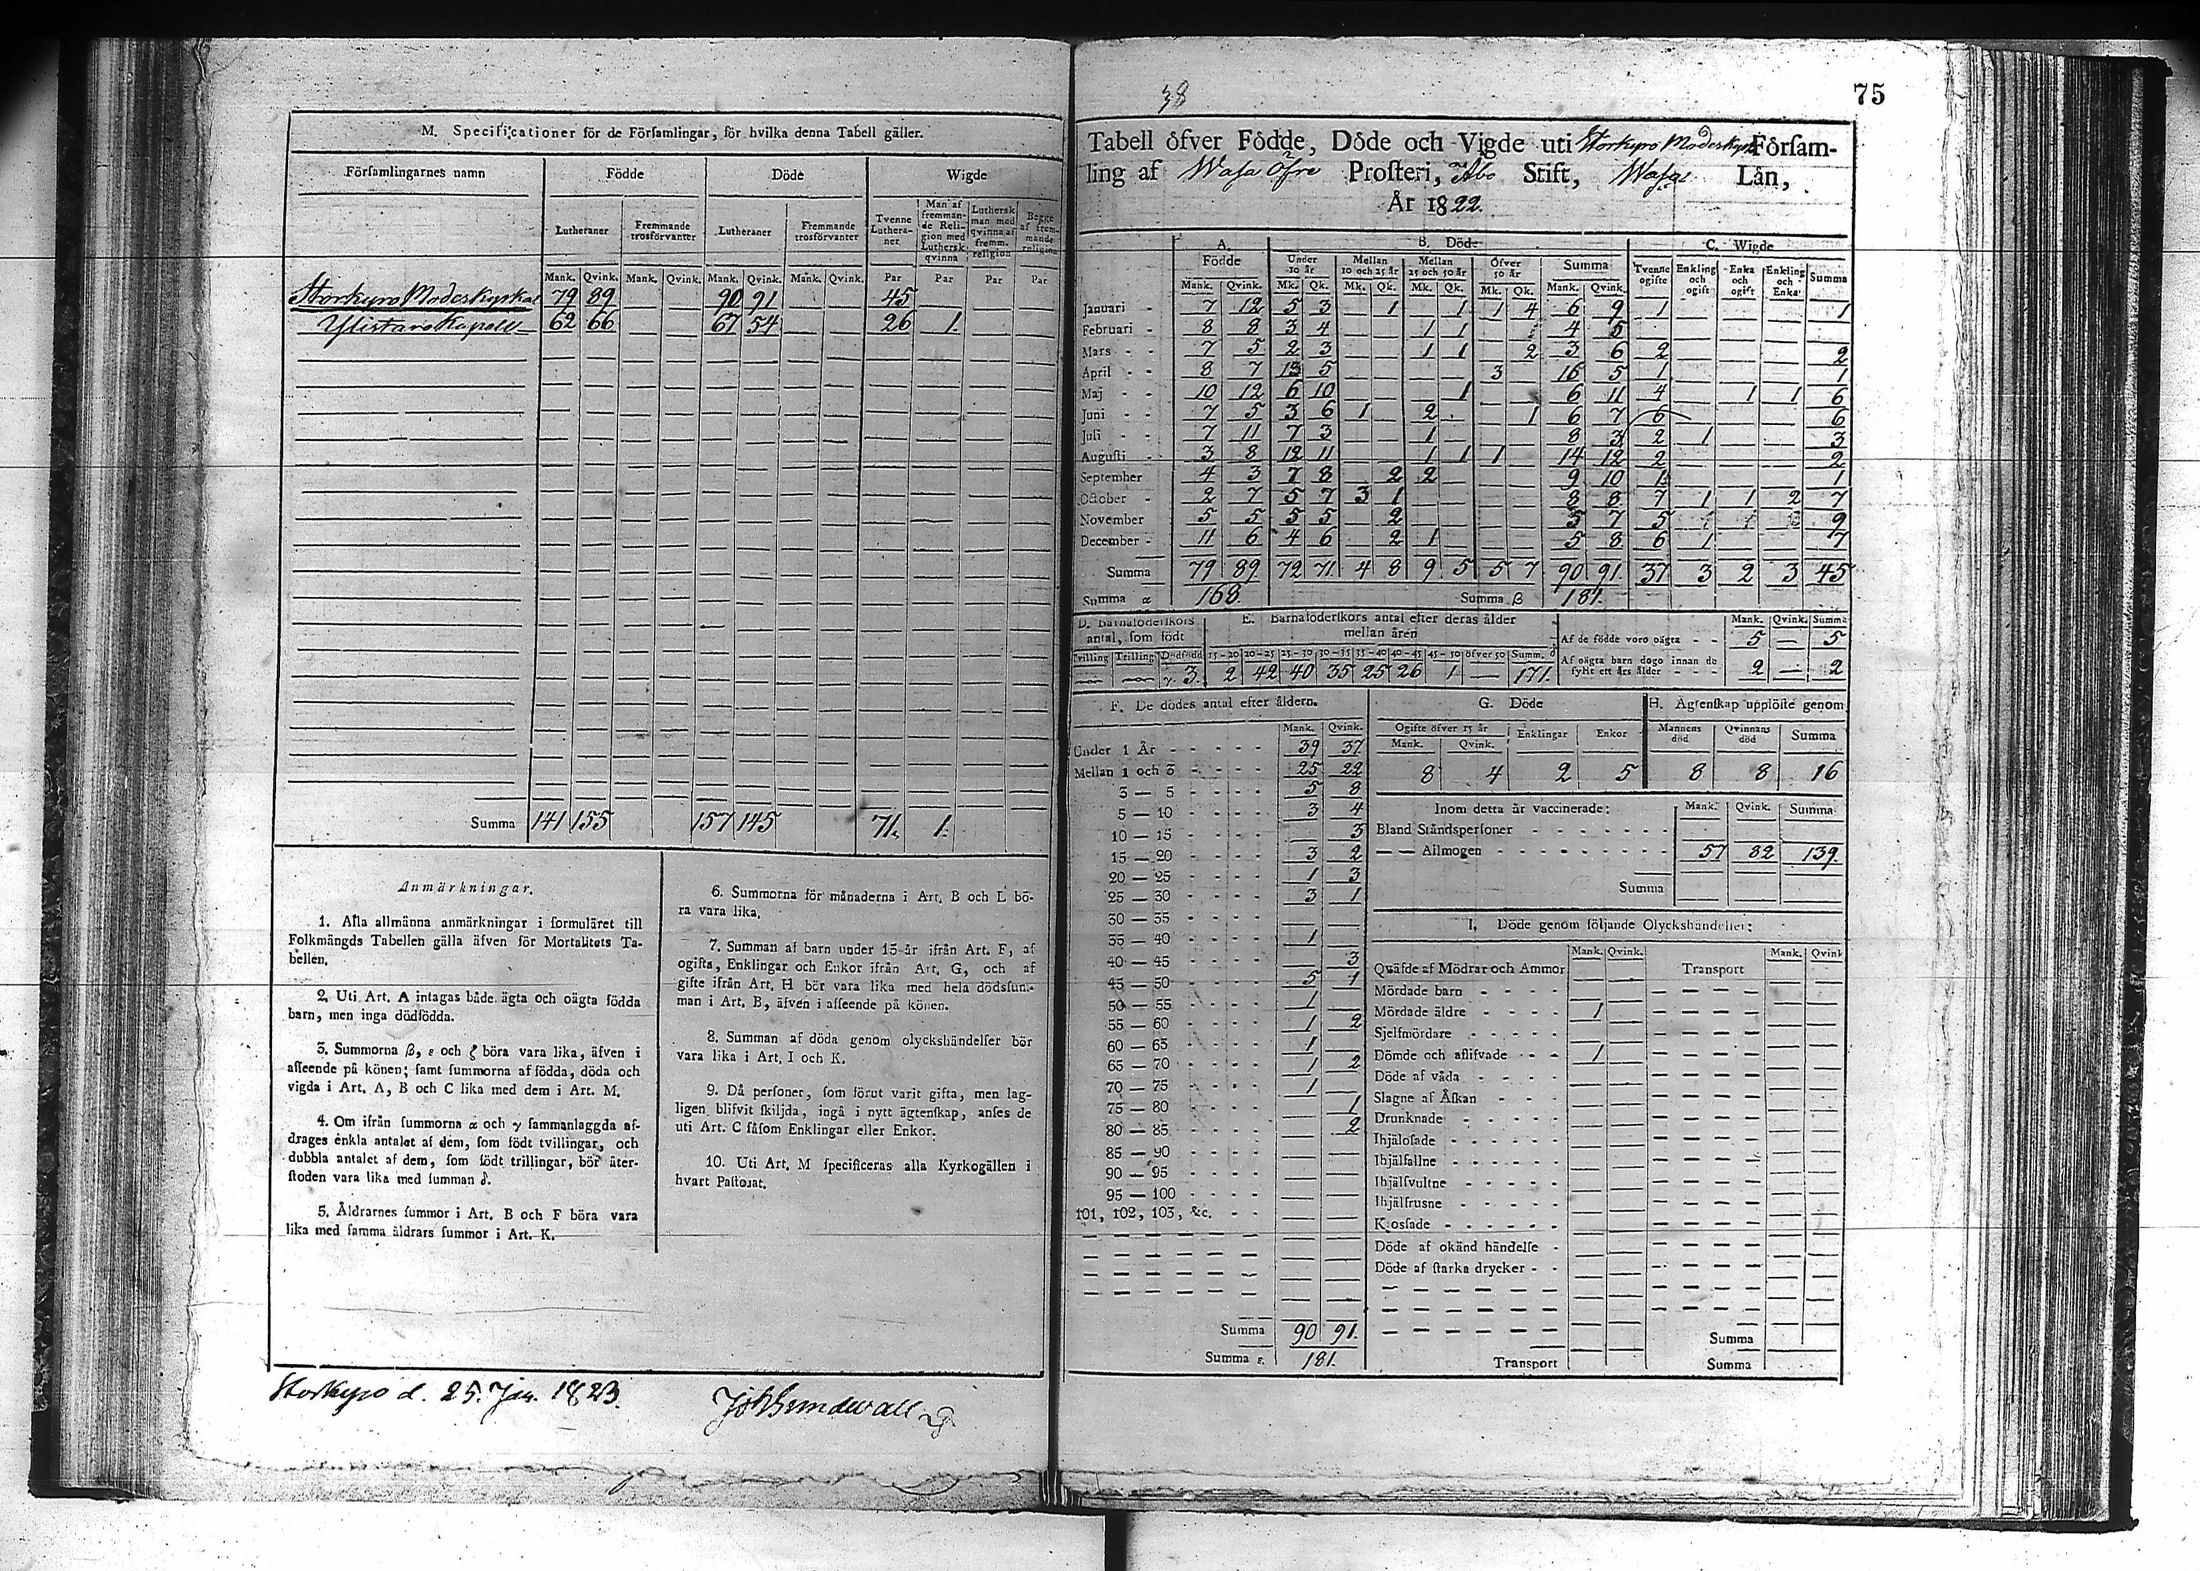 M. Specificationer för de Församlingar, för hvilka denna Tabell gäller.
Församlingarnes namn Födde Döde Wigde
Lutheraner Fremmande trosförvanter Lutheraner Fremmande trosförvanter Tvenne Lutheraner Man af fremmande Religion med Luthersk qvinna Luthersk man med qvinna af fremm. religion Begge af fremmande religion
Mank. Qvink. Mank. Qvink. Mank. Qvink. Mank. Qvink. Par Par Par Par
Storkyro Moderkyrka 79 89 90 91 45
Ylistaro Kapell 62 66 67 54 26 1.
Summa 141 155 157 145 71. 1.
Anmärkningar.
1. Alla allmänna anmärkningar i formuläret till
Folkmängds Tabellen gälla äfven för Mortalitets Ta-
bellen.
2. Uti Art. A intagas både ägta och oägta födda
barn, men inga dödfödda.
3. Summorna ß, ε och ζ böra vara lika, äfven i
afseende på könen; samt summorna af födda, döda och
vigda i Art. A, B och C lika med dem i Art. M.
4. Om ifrån summorna α och γ sammanlaggda af-
drages enkla antalet af dem, som födt tvillingar, och
dubbla antalet af dem, som födt trillingar, bör åter-
stoden vara lika med summan δ.
5. Åldrarnes summor i Art. B och F böra vara
lika med samma åldrars summor i Art. K.
6. Summorna för månaderna i Art. B och L bö-
ra vara lika.
7. Summan af barn under 15 år ifrån Art. F, af
ogifta, Enklingar och Enkor ifrån Art. G, och af
gifte ifrån Art. H bör vara lika med hela dödssum-
man i Art. B, äfven i afseende på könen.
8. Summan af döda genom olyckshändelser bör
vara lika i Art. I och K.
9. Då personer, som förut varit gifta, men lag-
ligen blifvit skiljda, ingå i nytt ägtenskap, anses de
uti Art. C såsom Enklingar eller Enkor.
10. Uti Art. M specificeras alla Kyrkogällen i
hvart Pastorat.
Storkyro d. 25. Jan. 1823.
38
75
Tabell öfver Födde, Döde och Vigde uti Storkyro Moderkyrk Församling af Wasa Öfre Prosteri, Åbo Stift, Wasa Län,
År 1822.
A. Födde B. Döde C. Wigde
Under 10 år Mellan 10 och 25 år Mellan 25 och 50 år Öfver 50 år Summa Tvenne ogifte Enkling och ogift Enka och ogift Enkling och Enka Summa
Mank. Qvink. Mk. Qk. Mk. Qk. Mk. Qk. Mk. Qk. Mank. Qvink.
Januari 7 12 5 3 1 1 1 4 6 9 1 1
Februari 8 8 3 4 1 1 4 5
Mars 7 5 2 3 1 1 2 3 6 2 2
April 8 7 13 5 3 16 5 1 1
Maj 10 12 6 10 1 6 11 4 1 1 6
Juni 7 5 3 6 1 2 1 6 7 6 6
Juli 7 11 7 3 1 8 3 2 1 3
Augusti 3 8 12 11 1 1 1 14 12 2 2
September 4 3 7 8 2 2 9 10 1 1
October 2 7 5 7 3 1 8 8 7 1 1 2 7
November 5 5 5 5 2 5 7 5 9
December 11 6 4 6 2 1 5 8 6 1 7
Summa 79 89 72 71. 4 8 9 5 5 7 90 91. 37 3 2 3 45
Summa α 168. Summa ß 181.
D. Barnaföderskors antal, som födt
Tvilling Trilling Dödfödd
γ. 3.
E. Barnaföderskors antal efter deras ålder mellan åren
15-20 20-25 25-30 30-35 35-40 40-45 45-50 öfver 50 Summ. δ
2 42 40 35 25 26 1 — 171.
Mank. Qvink. Summa
Af de födde voro oägta 5 — 5
Af oägta barn dogo innan de fyllt ett års ålder 2 — 2
F. De dödes antal efter åldern.
Mank. Qvink.
Under 1 År 39 37
Mellan 1 och 3 25 22
3 — 5 5 8
5 — 10 3 4
10 — 15 3
15 — 20 3 2
20 — 25 1 3
25 — 30 3 1
30 — 35
35 — 40 1
40 — 45 3
45 — 50 5 1
50 — 55 1
55 — 60 1 2
60 — 65 1
65 — 70 1 2
70 — 75 1
75 — 80 1
80 — 85 2
85 — 90
90 — 95
95 — 100
101, 102, 103, &c.
Summa 90 91.
Summa ε. 181.
G. Döde
Ogifte öfver 15 år Enklingar Enkor
Mank. Qvink.
8 4 2 5
H. Ägtenskap upplöste genom
Mannens död Qvinnans död Summa
8 8 16
Inom detta år vaccinerade: Mank. Qvink. Summa
Bland Ståndspersoner
— — Allmogen 57 82 139.
Summa
I. Döde genom följande Olyckshändelser:
Mank. Qvink. Mank. Qvink
Qväfde af Mödrar och Ammor Transport
Mördade barn
Mördade äldre 1
Sjelfmördare
Dömde och aflifvade 1
Döde af våda
Slagne af Åskan
Drunknade
Ihjälosade
Ihjälfallne
Ihjälsvultne
Ihjälfrusne
Krossade
Döde af okänd händelse
Döde af starka drycker
Summa
Transport Summa